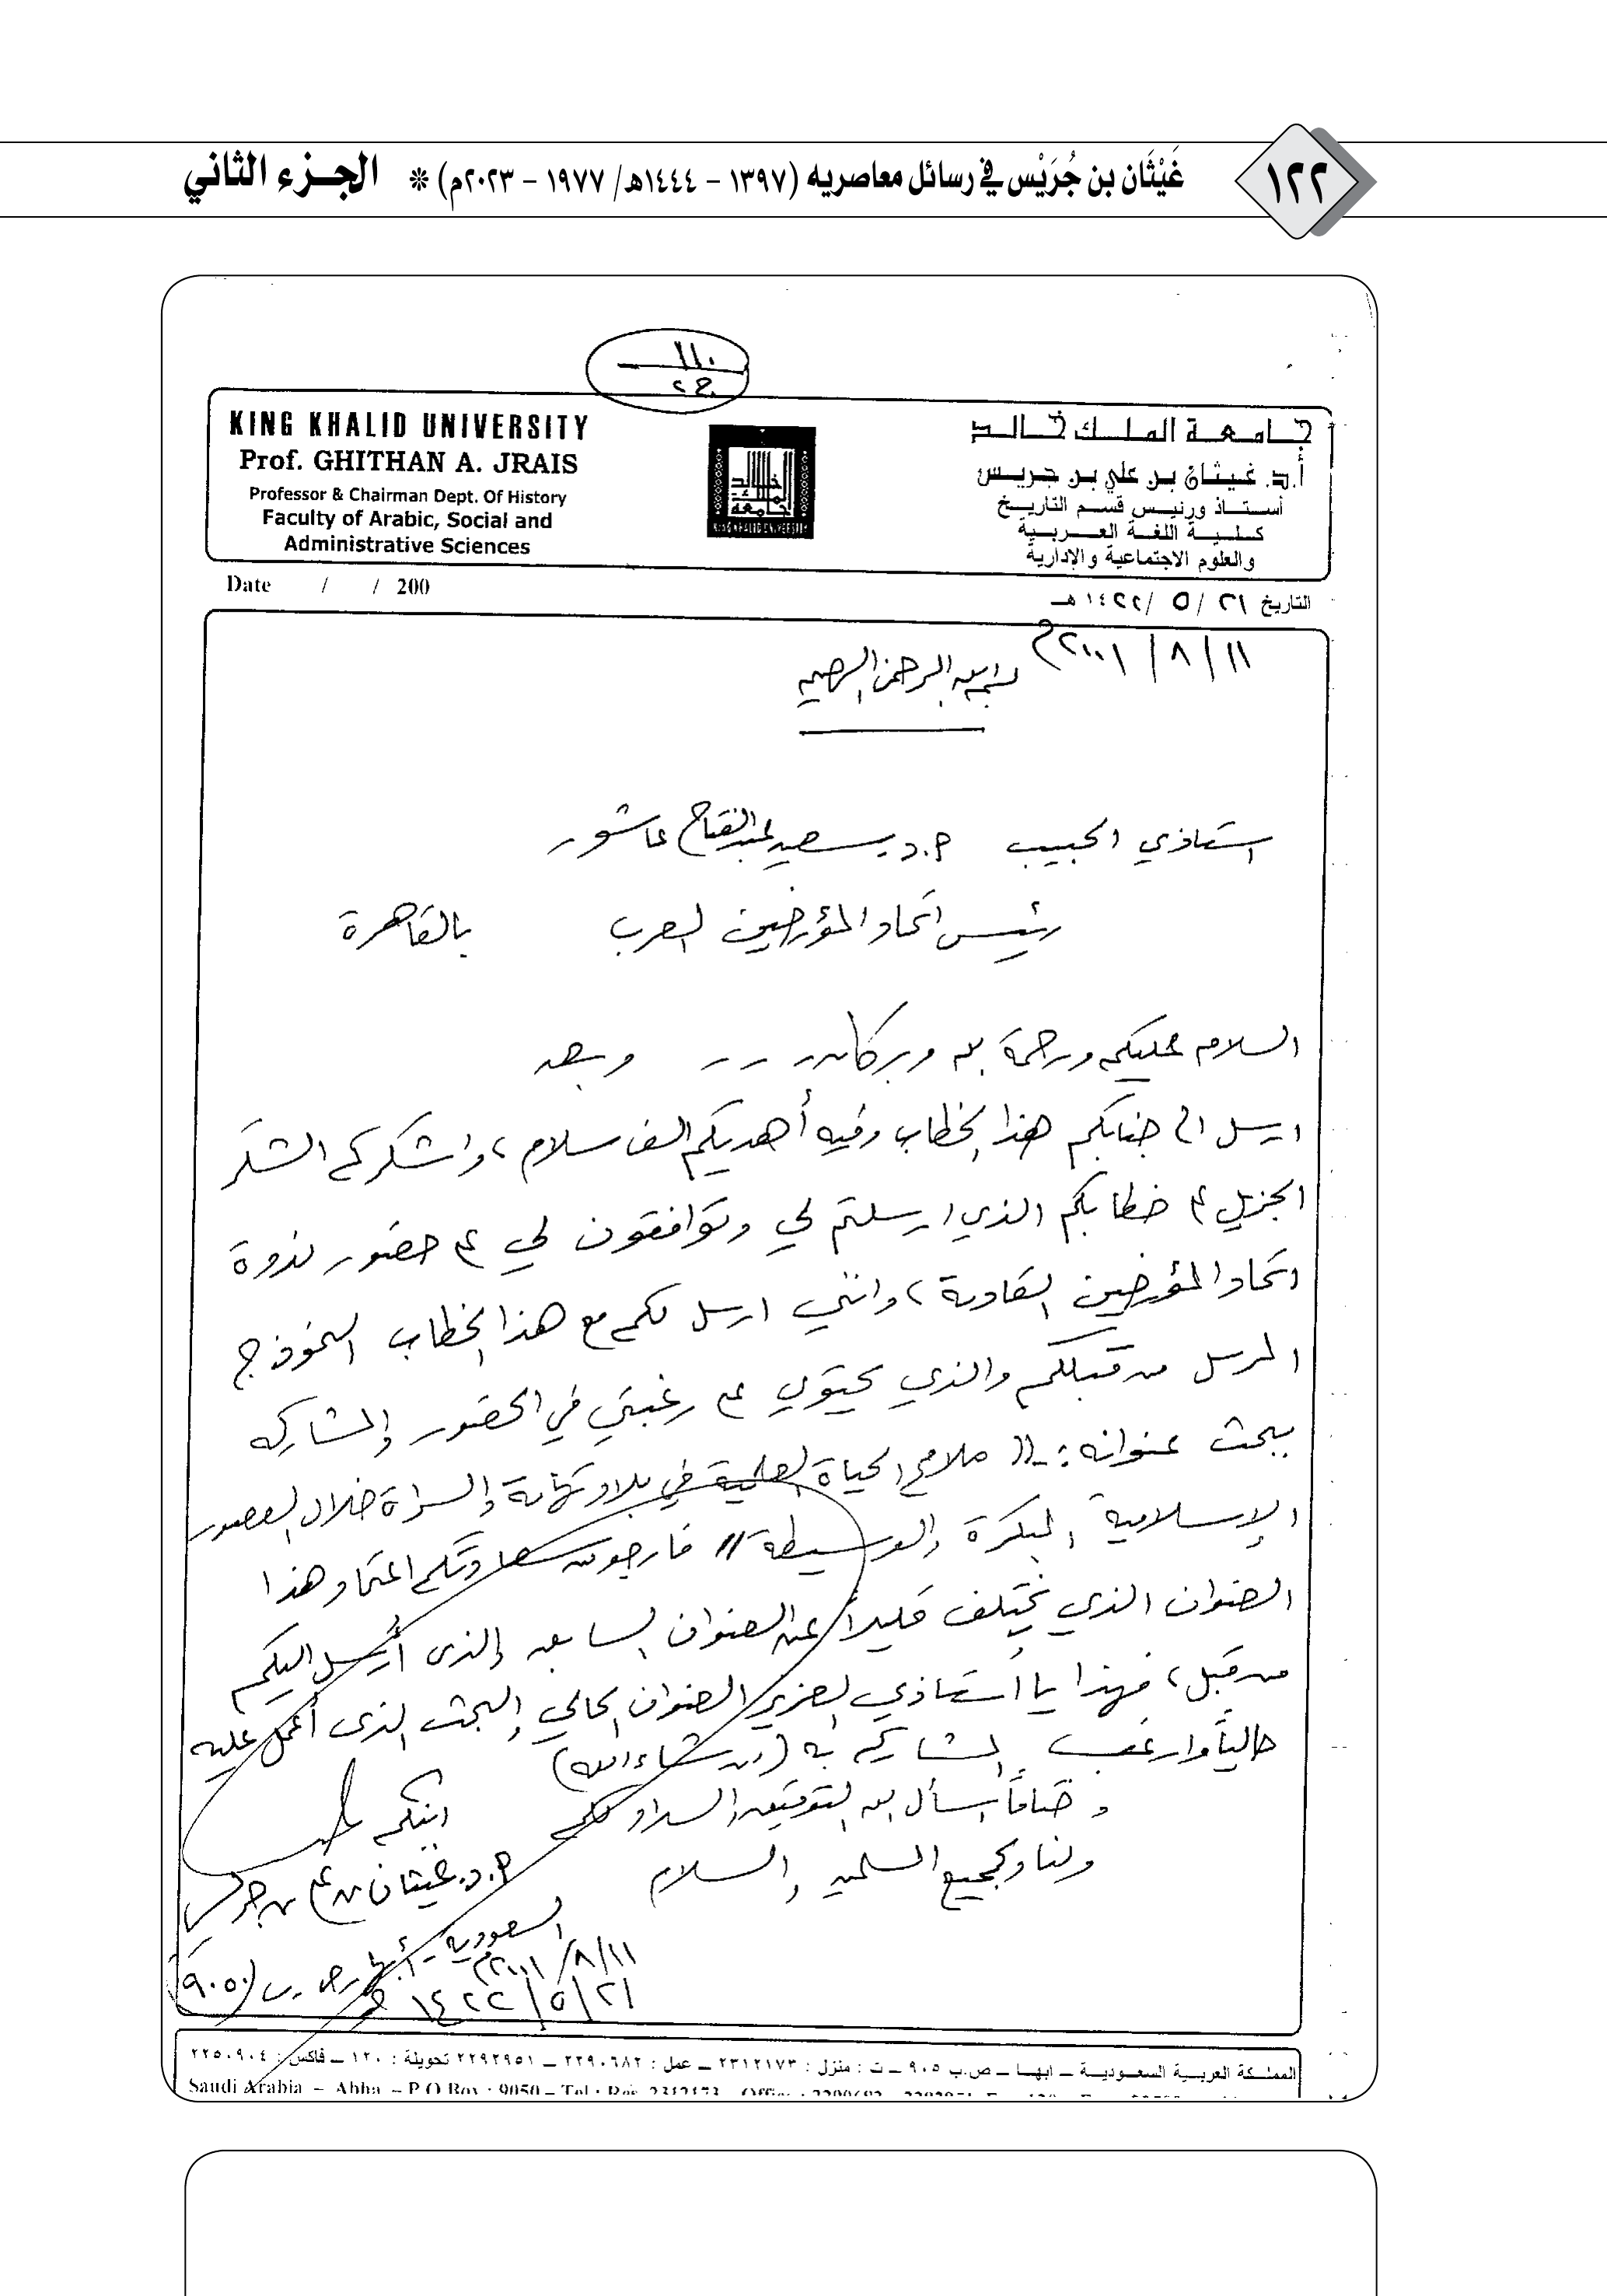 ١٢٢
غَيْثَان بن جُرَيْس في رسائل معاصريه (١٣٩٧ - ١٤٤٤هـ/ ١٩٧٧ - ٢٠٢٣م) * الجزء الثاني
١١٠
ج٢
KING KHALID UNIVERSITY
Prof. GHITHAN A. JRAIS
Professor & Chairman Dept. Of History
Faculty of Arabic, Social and
Administrative Sciences
جامعة الملك خالد
أ.د. غيثان بن علي بن جريس
أستاذ ورئيس قسم التاريخ
كلية اللغة العربية
والعلوم الاجتماعية والإدارية
Date / / 200
التاريخ ٢١ / ٥ / ١٤٢٢ هـ
١١ / ٨ / ٢٠٠١م
بسم الله الرحمن الرحيم
استاذي الحبيب أ.د. سعيد عبدالفتاح عاشور
رئيس اتحاد المؤرخين العرب بالقاهرة
السلام عليكم ورحمة الله وبركاته - - - وبعد
ارسل الى جنابكم هذا الخطاب وفيه أهديكم الف سلام، واشكركم الشكر
الجزيل على خطابكم الذي ارسلتم لي وتوافقون لي على حضور ندوة
اتحاد المؤرخين القادمة، وانني ارسل لكم مع هذا الخطاب النموذج
المرسل من قبلكم والذي يحتوي على رغبتي في الحضور والمشاركه
ببحث عنوانه :- (( ملامح الحياة العلمية في بلاد تهامة والسراة خلال العصور
الإسلامية المبكرة والوسيطة )) فارجو من سعادتكم اعتماد هذا
العنوان الذي يختلف قليلاً عن العنوان السابق والذى أُرسل اليكم
من قبل، فهذا يا أستاذي العزيز العنوان الحالي والبحث الذى أعمل عليه
حالياً وارغب المشاركه به (إن شاء الله)
وختاماً اسأل الله التوفيق والسداد لكم
ولنا ولجميع المسلمين والسلام
ابنكم
أ.د. غيثان بن علي بن جريس
السعودية - أبها - ص.ب (٩٠٥٠)
١١/ ٨/ ٢٠٠١م
٢١/ ٥/ ١٤٢٢ هـ
المملكة العربية السعودية – ابها – ص.ب ٩٠٥ – ت : منزل : ٢٣١٢١٧٣ – عمل : ٢٢٩٠٦٨٢ – ٢٢٩٢٩٥١ تحويلة : ١٢٠ – فاكس : ٢٢٥٠٩٠٤
Saudi Arabia – Abha – P.O.Box : 9050 – Tel : Res. 2312173 – Office : 2290682